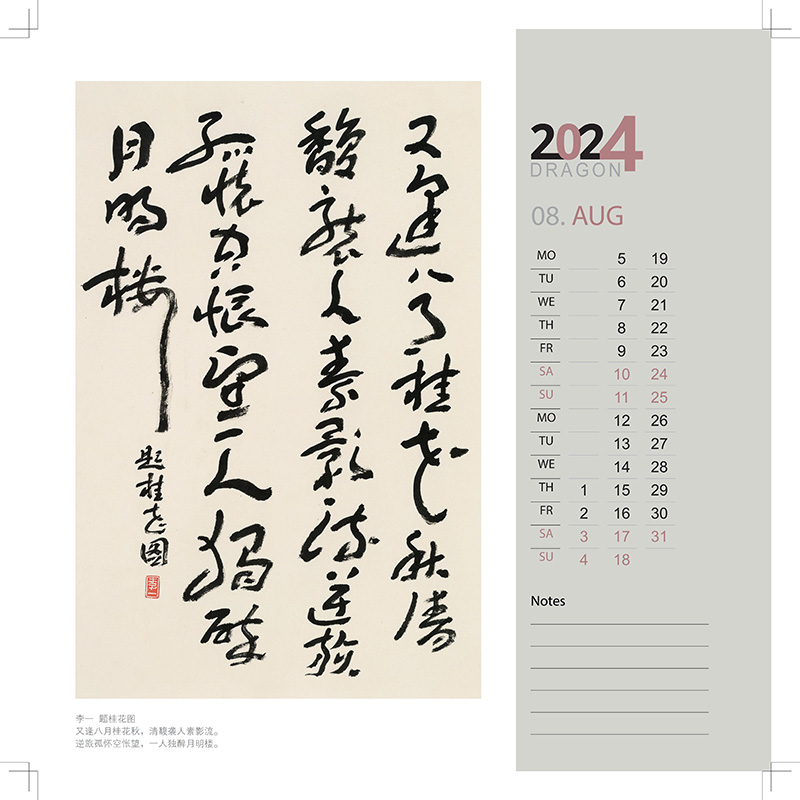 又逢八月桂花秋清
馥襲人素影流逆旅
孤懷空悵望一人獨醉
月明樓
題桂花圖
李一
李一 题桂花图
又逢八月桂花秋，清馥袭人素影流。
逆旅孤怀空怅望，一人独醉月明楼。
2024
DRAGON
08. AUG
MO 5 19
TU 6 20
WE 7 21
TH 8 22
FR 9 23
SA 10 24
SU 11 25
MO 12 26
TU 13 27
WE 14 28
TH 1 15 29
FR 2 16 30
SA 3 17 31
SU 4 18
Notes